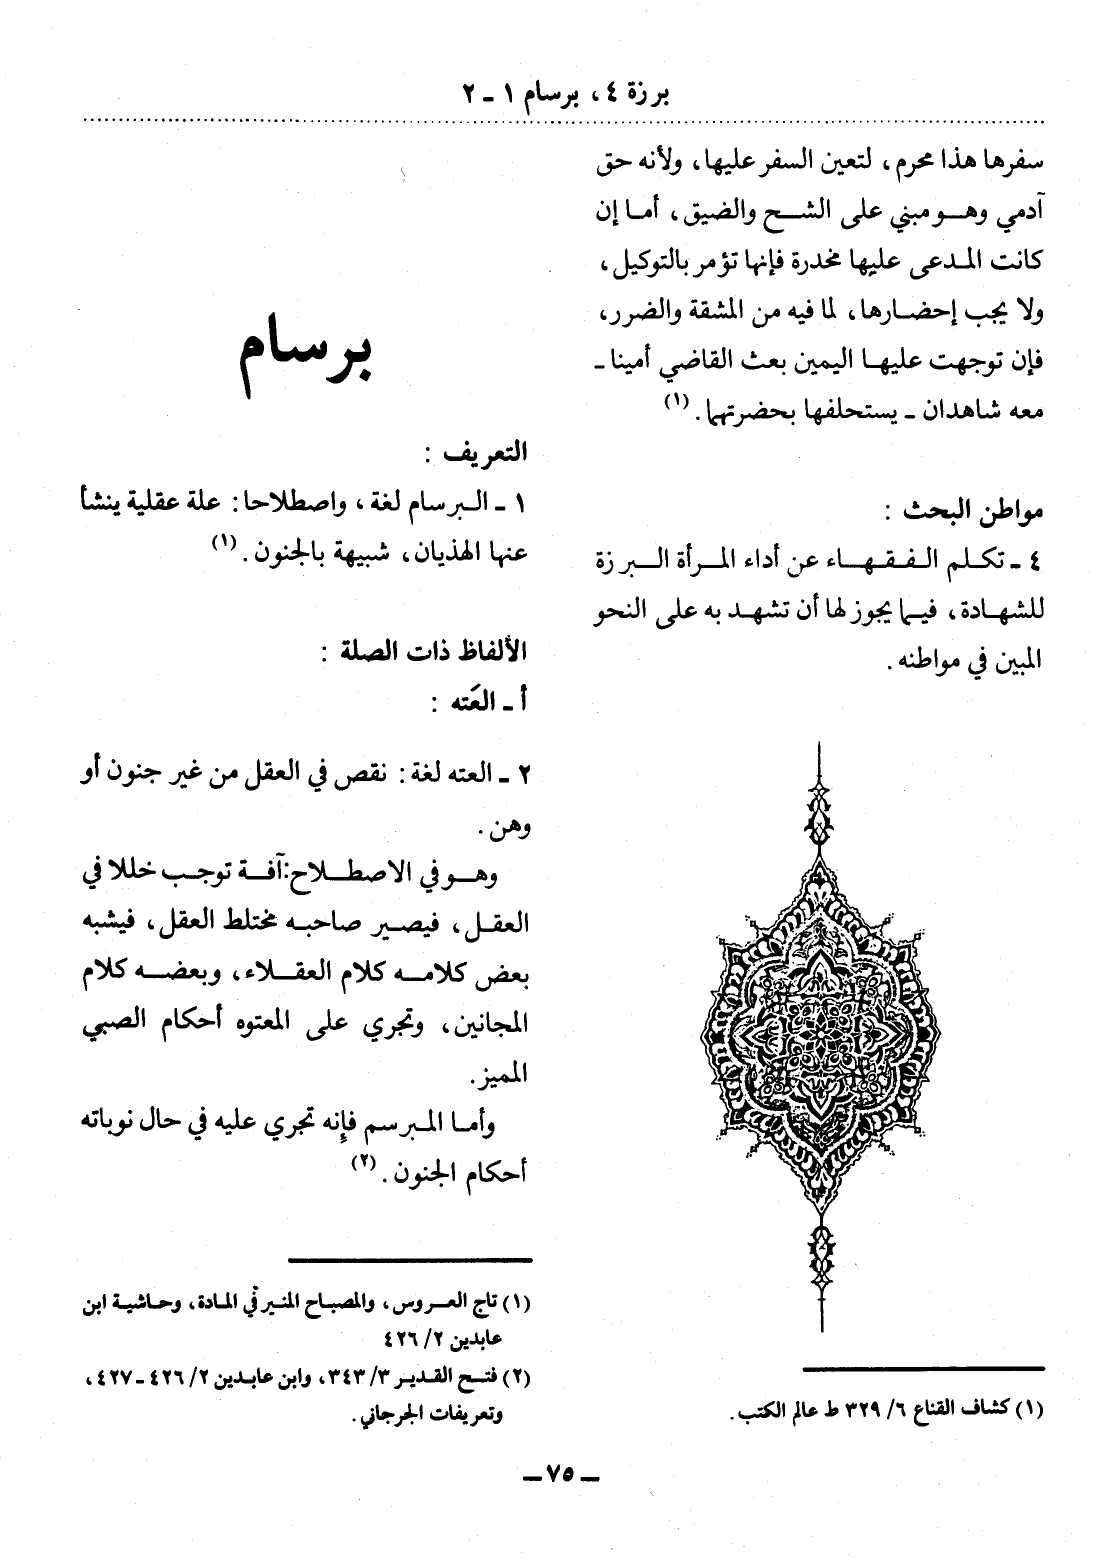 برزة ٤ ، برسام ١ ـ ٢
سفرها هذا محرم ، لتعين السفر عليها ، ولأنه حق
آدمي وهو مبني على الشح والضيق ، أما إن
كانت المدعى عليها مخدرة فإنها تؤمر بالتوكيل ،
ولا يجب إحضارها ، لما فيه من المشقة والضرر ،
فإن توجهت عليها اليمين بعث القاضي أمينا ـ
معه شاهدان ـ يستحلفها بحضرتهما . (١)
مواطن البحث :
٤ ـ تكلم الفقهاء عن أداء المرأة البرزة
للشهادة ، فيما يجوز لها أن تشهد به على النحو
المبين في مواطنه .
(١) كشاف القناع ٦/ ٣٢٩ ط عالم الكتب .
برسام
التعريف :
١ ـ البرسام لغة ، واصطلاحا : علة عقلية ينشأ
عنها الهذيان ، شبيهة بالجنون . (١)
الألفاظ ذات الصلة :
أ ـ العَته :
٢ ـ العته لغة : نقص في العقل من غير جنون أو
وهن .
وهو في الاصطلاح : آفة توجب خللا في
العقل ، فيصير صاحبه مختلط العقل ، فيشبه
بعض كلامه كلام العقلاء ، وبعضه كلام
المجانين ، وتجري على المعتوه أحكام الصبي
المميز .
وأما المبرسم فإنه تجري عليه في حال نوباته
أحكام الجنون . (٢)
(١) تاج العروس ، والمصباح المنير في المادة ، وحاشية ابن
عابدين ٢/ ٤٢٦
(٢) فتح القدير ٣/ ٣٤٣ ، وابن عابدين ٢/ ٤٢٦ ـ ٤٢٧ ،
وتعريفات الجرجاني .
ـ ٧٥ ـ